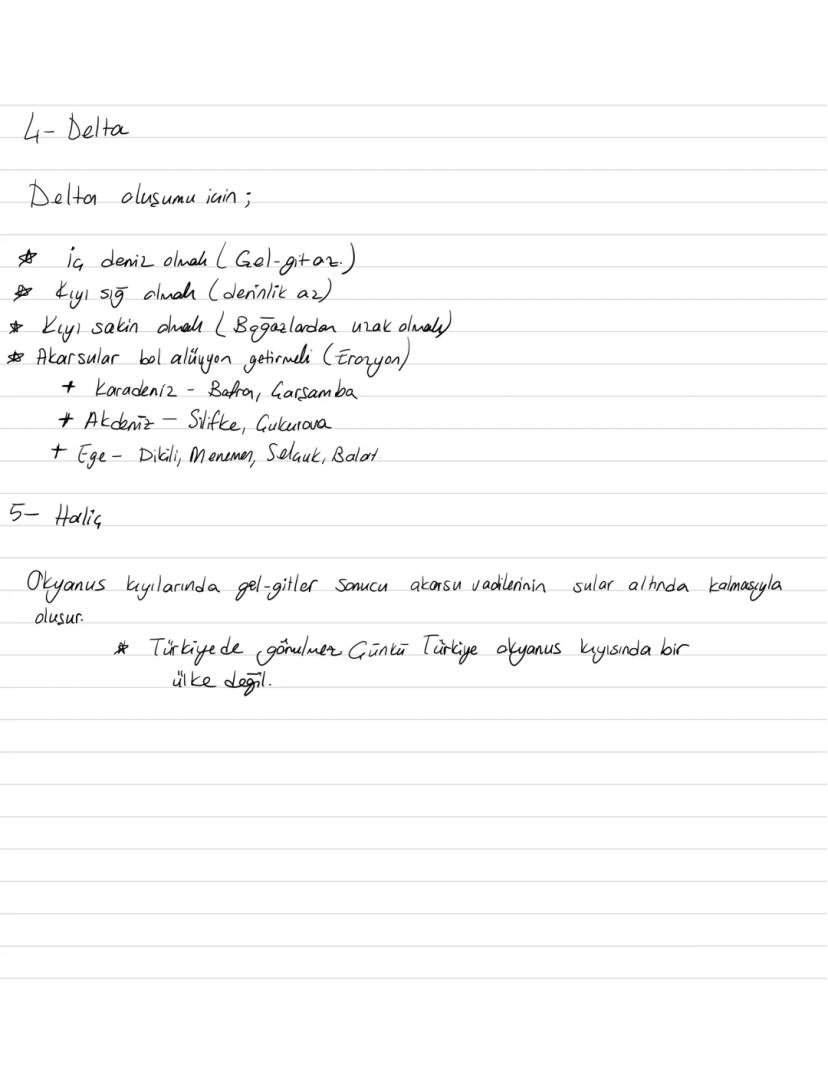 4- Delta
Delta oluşumu için;
* İç deniz olmalı (Gel-git az.)
* Kıyı sığ olmalı (derinlik az)
* Kıyı sakin olmalı (Boğazlardan uzak olmalı)
* Akarsular bol alüvyon getirmeli (Erozyon)
+ Karadeniz - Bafra, Çarşamba
+ Akdeniz - Silifke, Çukurova
+ Ege - Dikili, Menemen, Selçuk, Balat.
5- Haliç
Okyanus kıyılarında gel-gitler sonucu akarsu vadilerinin sular altında kalmasıyla
oluşur.
* Türkiyede görülmez Çünkü Türkiye okyanus kıyısında bir
ülke değil.